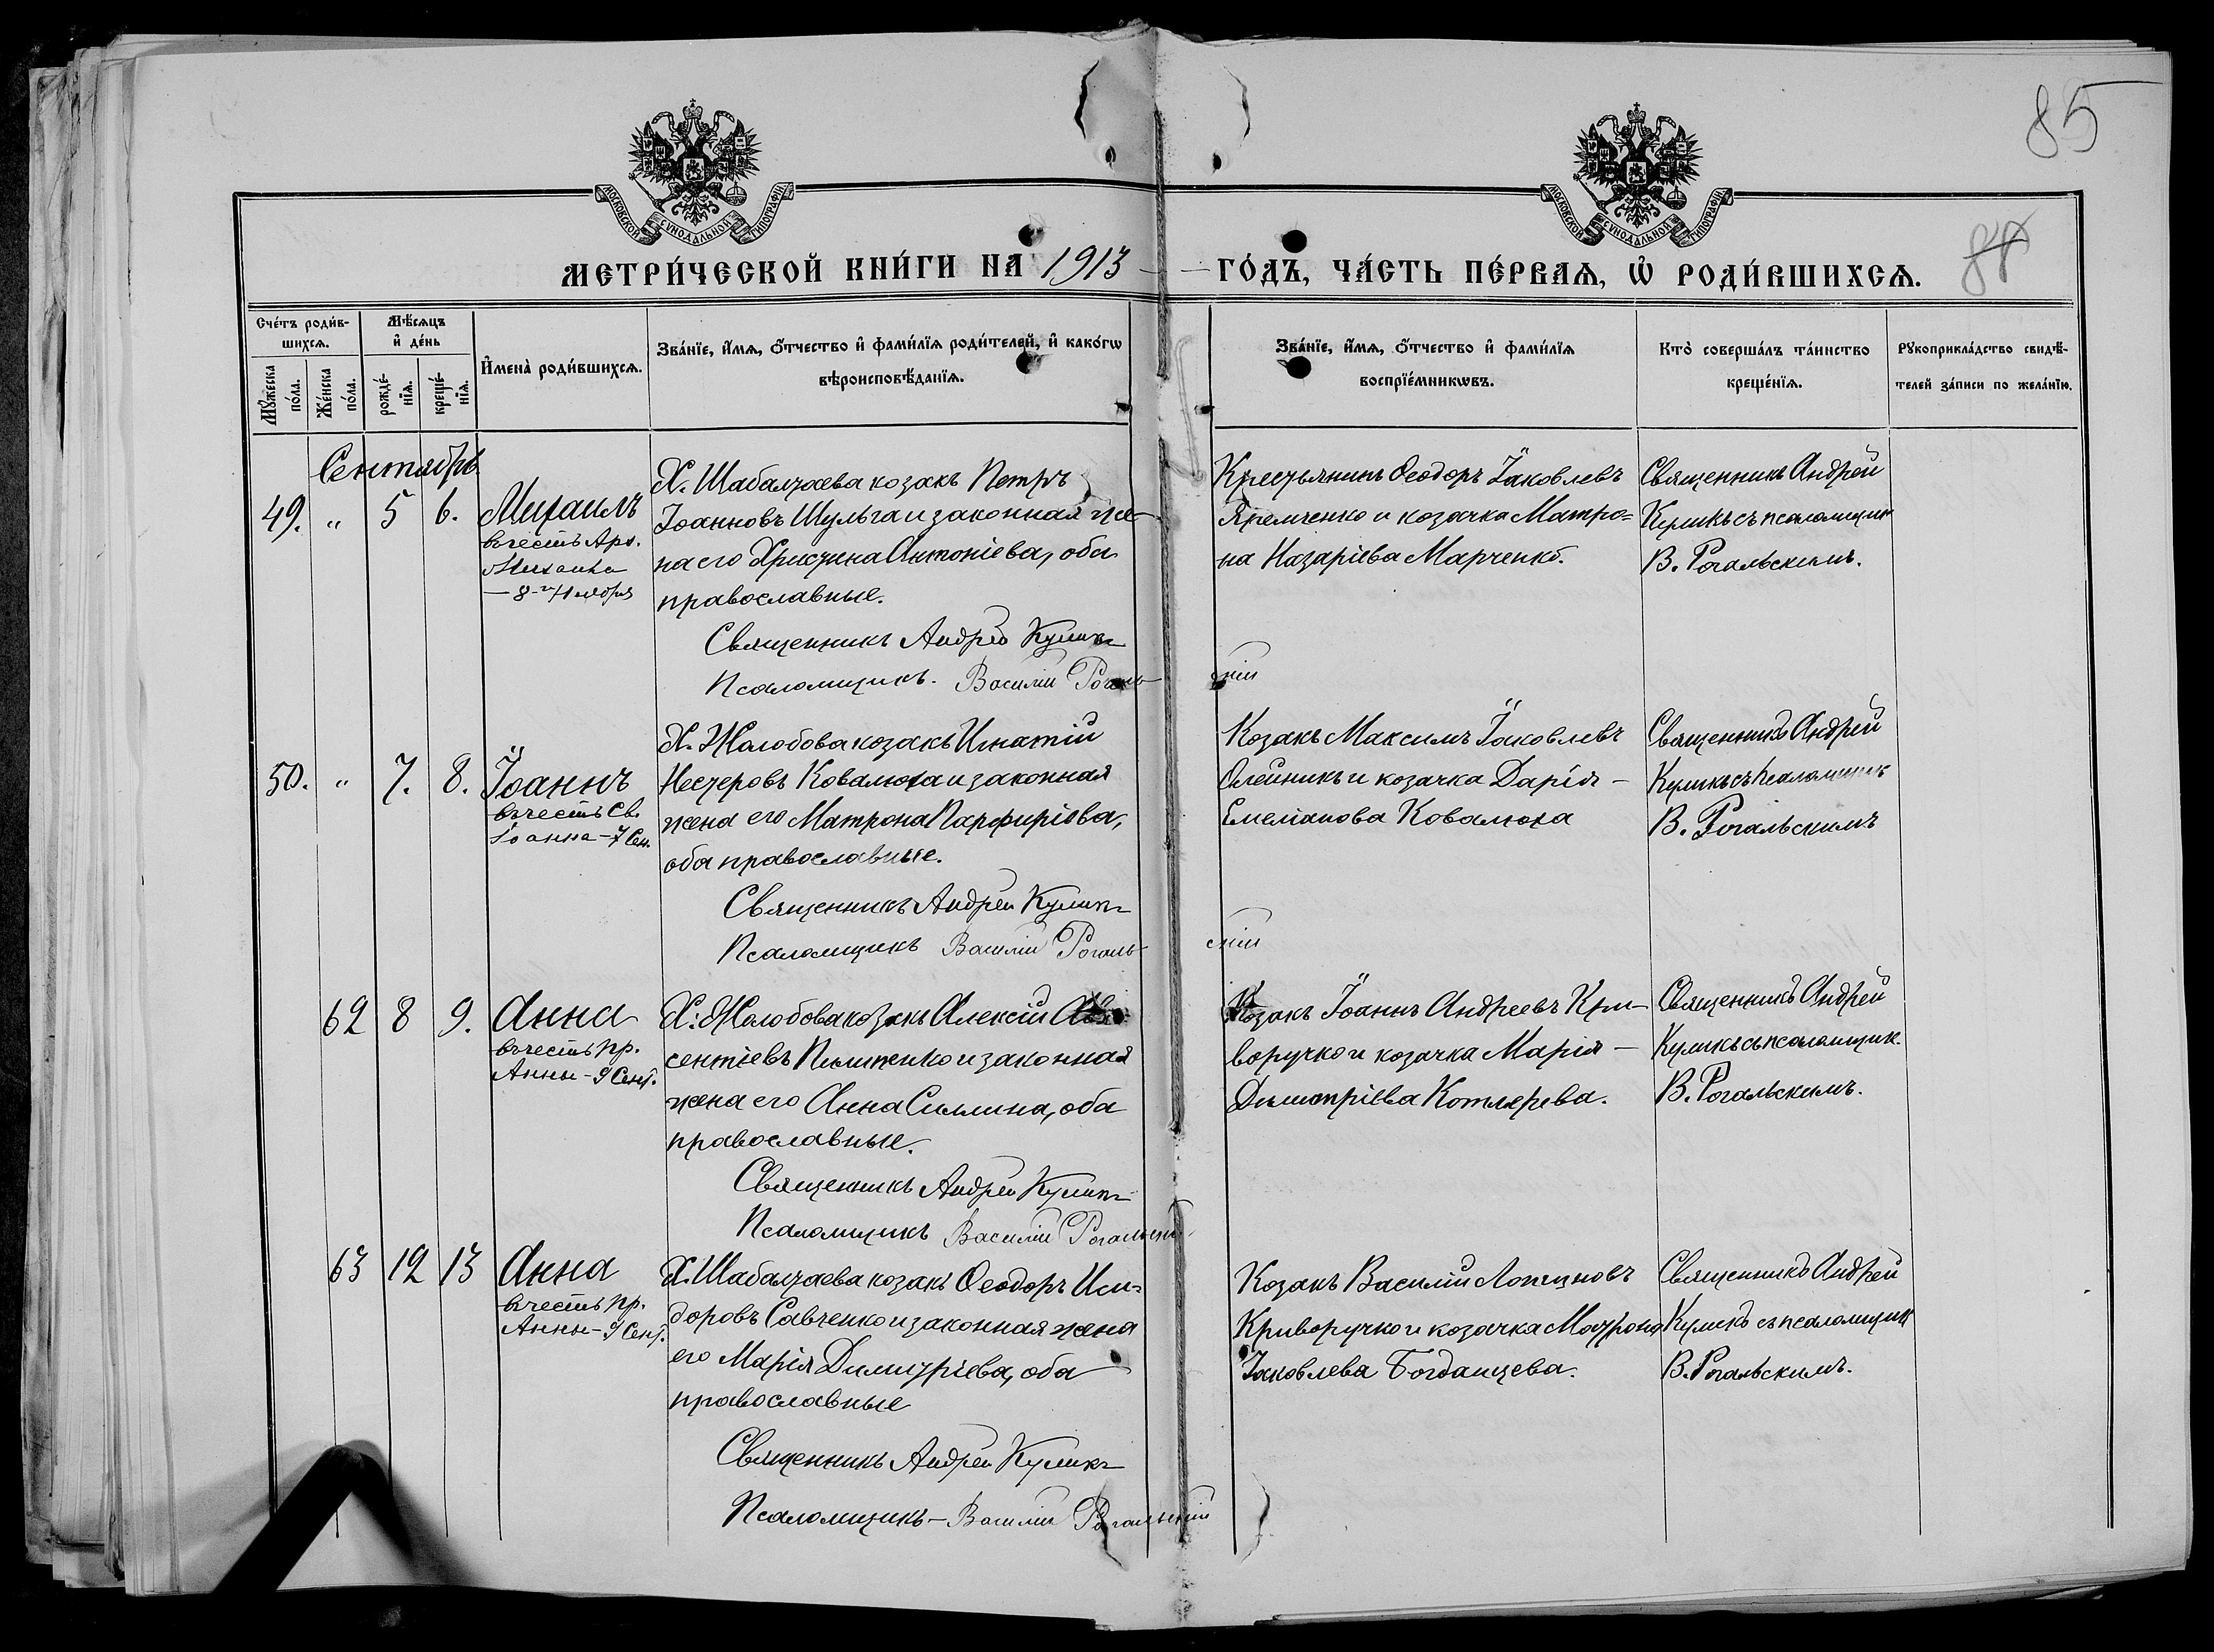 85
МОСКОВСКОЙ СѴНОДАЛЬНОЙ ТИПОГРАФІИ
МОСКОВСКОЙ СѴНОДАЛЬНОЙ ТИПОГРАФІИ
МЕТРИ́ЧЕСКОЙ КНИ́ГИ НА 1913 ГО́ДЪ, ЧА́СТЬ ПЕ́РВАѦ, Ѡ РОДИ́ВШИХСѦ.
Сче́тъ роди́в-
шихсѧ.
Мꙋ́жеска по́ла.
Же́нска по́ла.
Мѣ́сѧцъ
и҆ де́нь
рожде́-
нїѧ.
креще́-
нїѧ.
И҆мена̀ роди́вшихсѧ.
Зва́нїе, и҆́мѧ, ѻ҆́тчество и҆ фами́лїѧ роди́телей, и҆ како́гѡ
вѣроисповѣ́данїѧ.
Зва́нїе, и҆́мѧ, ѻ҆́тчество и҆ фами́лїѧ
воспрїе́мникѡвъ.
Кто̀ соверша́лъ та́инство
креще́нїѧ.
Рꙋкоприкла́дство свидѣ́-
телей за́писи по жела́нїю.
Сентябрь
49. " 5 6. Михаилъ
въ честь Арх.
Михаила
— 8-го Ноября
Х. Шабалтаева козакъ Петръ
Іоанновъ Шульга и законная же-
на его Христина Антоніева, оба
православные.
Священникъ Андрей Куликъ
Псаломщикъ. Василій Рогальскій
Крестьянинъ Ѳеодоръ Іаковлевъ
Яременко и козачка Матро-
на Назаріева Марченко.
Священникъ Андрей
Куликъ съ псаломщик
В. Рогальскимъ.
50. " 7. 8. Іоаннъ
въ честь Св.
Іоанна - 7 Сен.
Х. Жолобова козакъ Игнатій
Нестеровъ Ковалюха и законная
жена его Матрона Парфиріева,
оба православные.
Священникъ Андрей Куликъ
Псаломщикъ Василій Рогальскій
Козакъ Максимъ Іаковлевъ
Олейникъ и козачка Дарія -
Емеліанова Ковалюха
Священникъ Андрей
Куликъ съ псаломщик
В. Рогальскимъ
62 8 9. Анна
въ честь пр.
Анны - 9 Сент.
Х. Жолобова козакъ Алексій Авк-
сентіевъ Пилипенко и законная
жена его Анна Силина, оба
православные.
Священникъ Андрей Куликъ
Псаломщикъ Василій Рогальскій
Козакъ Іоаннъ Андреевъ Кри-
воручко и козачка Марія -
Димитріева Котлярева.
Священникъ Андрей
Куликъ съ псаломщик.
В. Рогальскимъ.
63 12 13 Анна
въ честь пр.
Анны - 9 Сент.
Х. Шабалтаева козакъ Ѳеодоръ Иси-
доровъ Савченко и законная жена
его Марія Димитріева, оба
православные
Священникъ Андрей Куликъ
Псаломщикъ - Василій Рогальскій
Козакъ Василій Логгиновъ
Криворучко и козачка Матрона
Іаковлева Богданцева.
Священникъ Андрей
Куликъ съ псаломщик
В. Рогальскимъ.